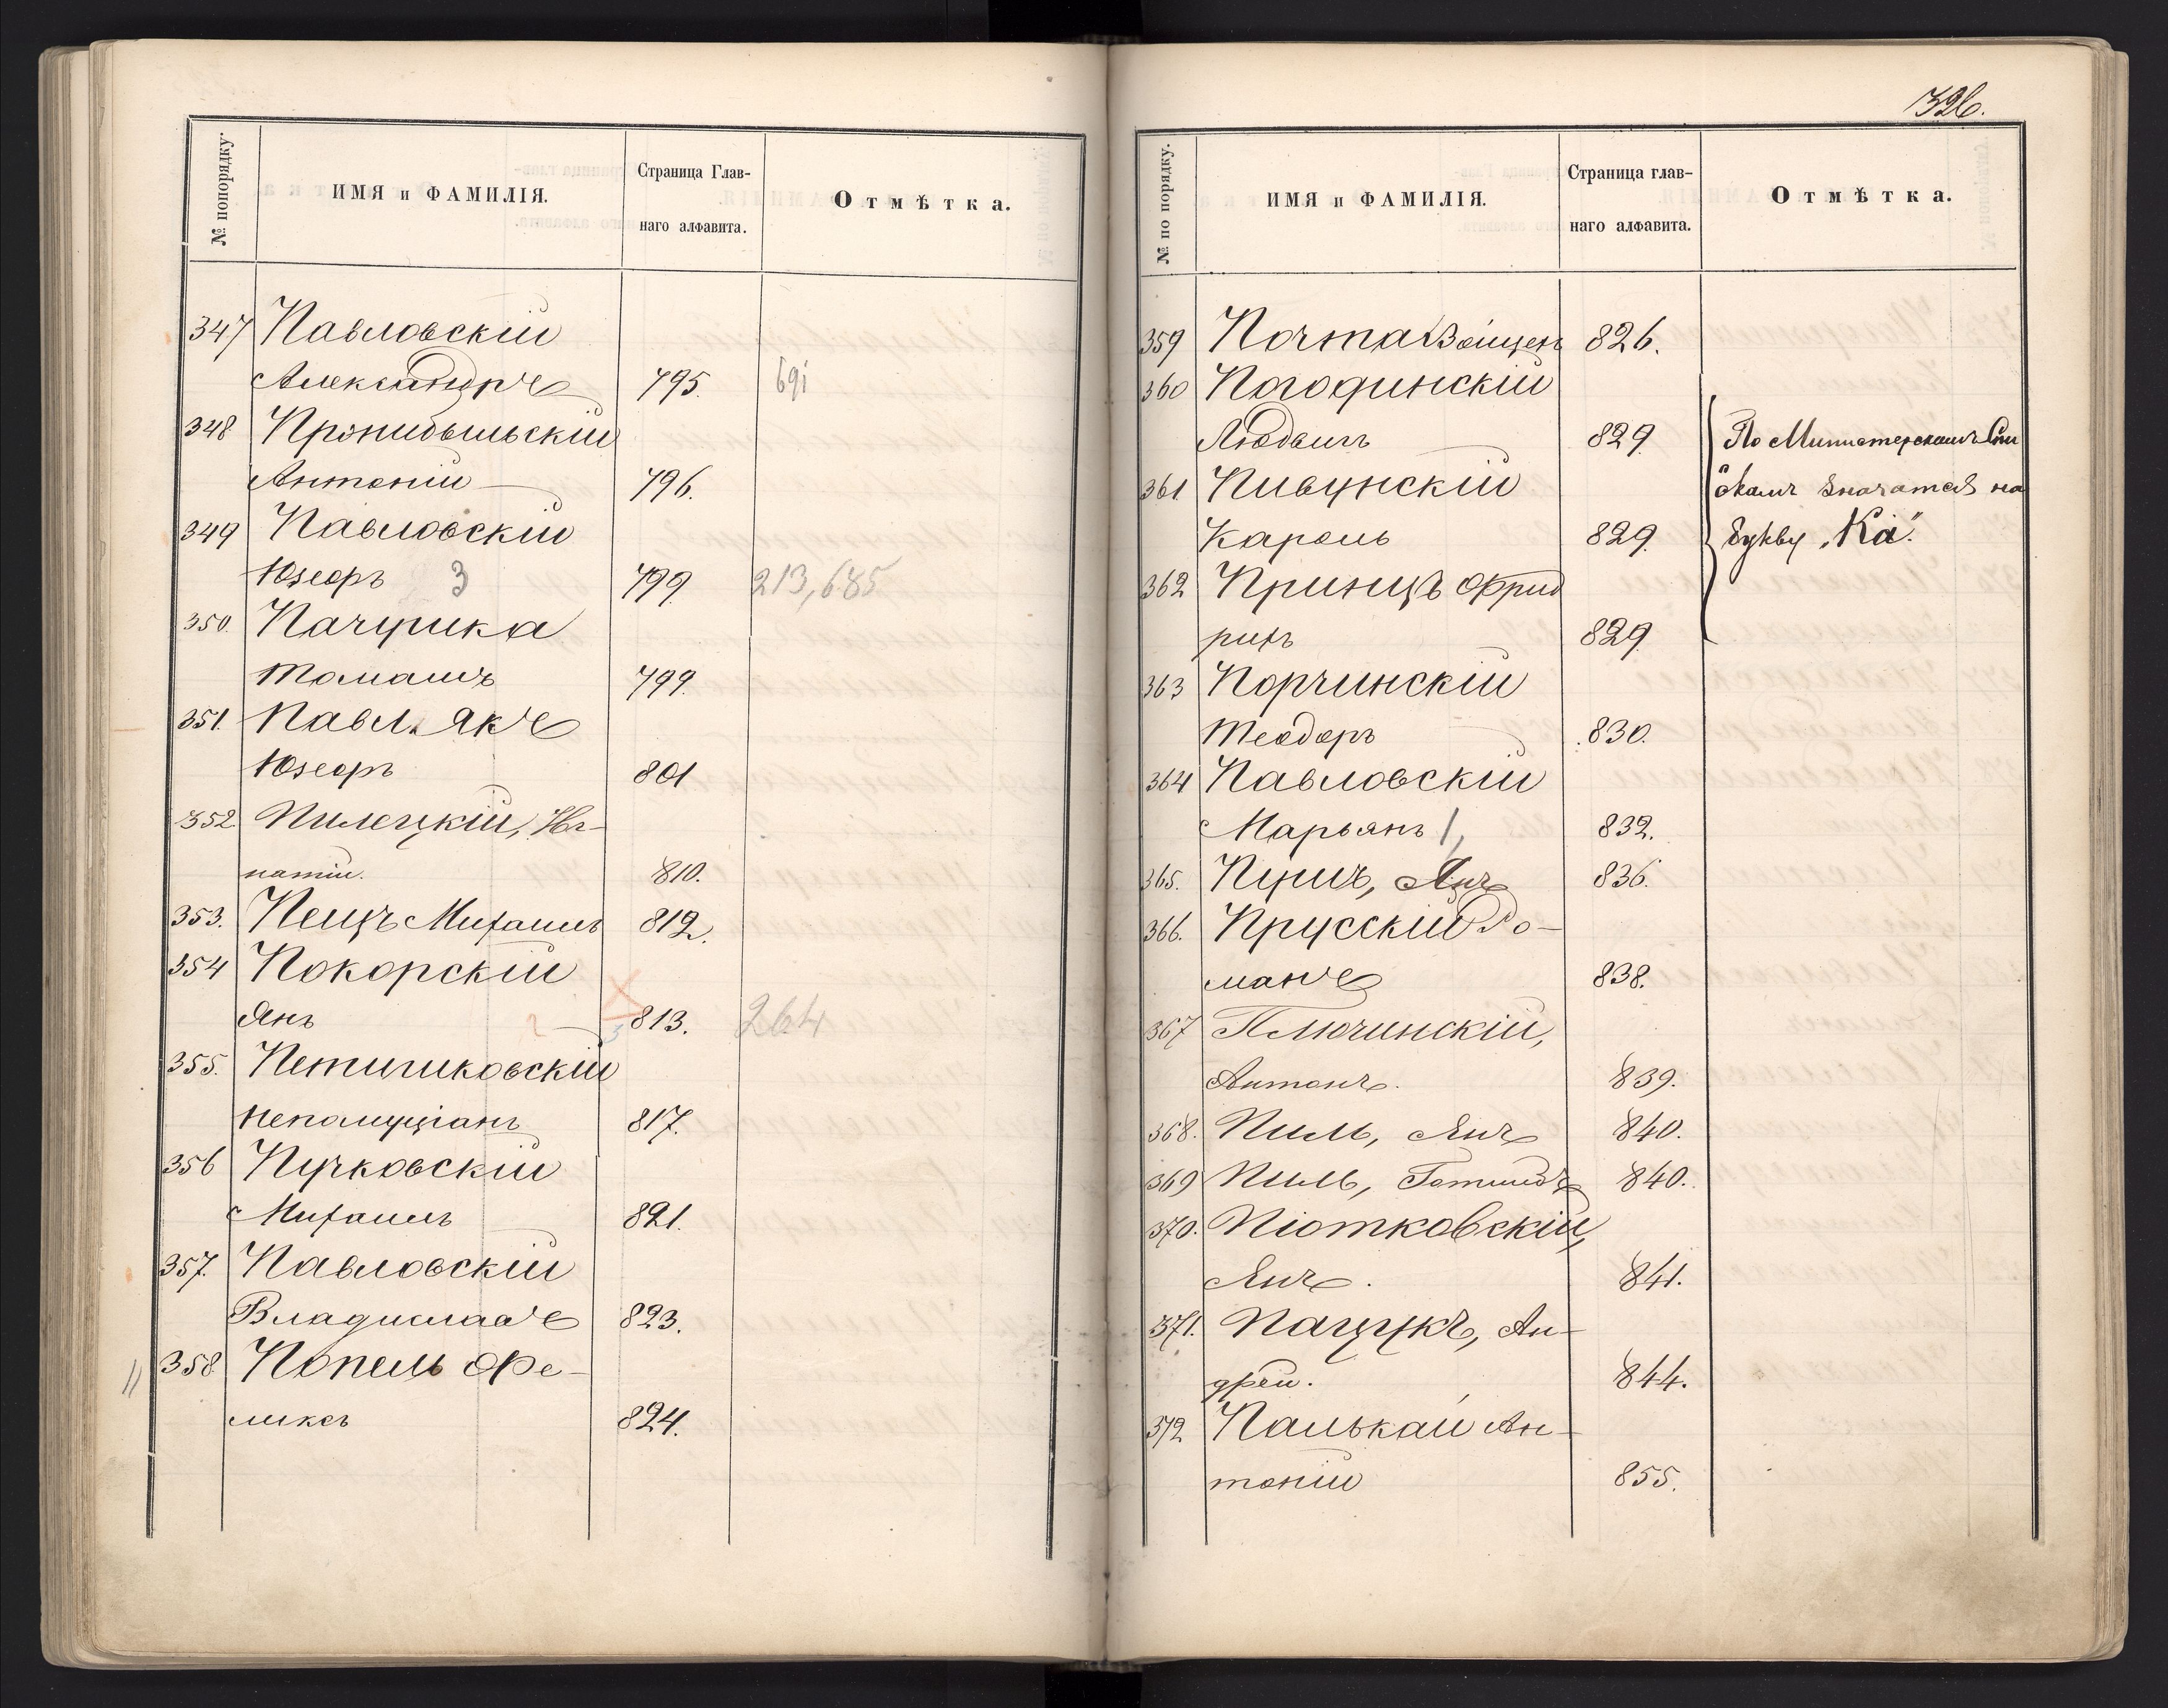 326.
№ попорядку.
ИМЯ и ФАМИЛІЯ.
Страница Глав-
наго алфавита.
Отмѣтка.
347 Павловскій
Александръ 795. 691
348 Пронибыльскій
Антоній 796.
349 Павловскій
Юзефъ 3 799 213,685
350. Пачурика
Томашъ 799.
351. Павлякъ
Юзефъ 801
352 Пилецкій, Иг-
натій. 810.
353. Пещъ Михаилъ 812.
354 Покорскій
Янъ 813. 264
355. Петшиковскій
Непомуціанъ 817.
356 Пучковскій
Михаилъ 821.
357. Павловскій
Владиславъ 823.
358 Попель Фе-
ликсъ 824.
№ по порядку.
ИМЯ и ФАМИЛІЯ.
Страница глав-
наго алфавита.
Отмѣтка.
359 Почта Войцехъ 826.
360 Погодинскій
Людвигъ 829. По Министерскимъ Спи
361 Пивунскій
скамъ значатся на
Кароль 829. букву „Ка".
362 Принцъ Фрид
рихъ 829
363 Порчинскій
Теодоръ 830.
364 Павловскій
Марьянъ 1, 832.
365. Пуцъ, Янъ 836.
366. Прусскій Ро-
манъ 838.
367 Плючинскій,
Антонъ. 839.
368. Пиль, Янъ 840.
369 Пиль, Готлибъ 840.
370. Піотковскій,
Янъ. 841.
371. Пацукъ, Ан-
дрей. 844.
372 Палькай Ан-
тоній 855.